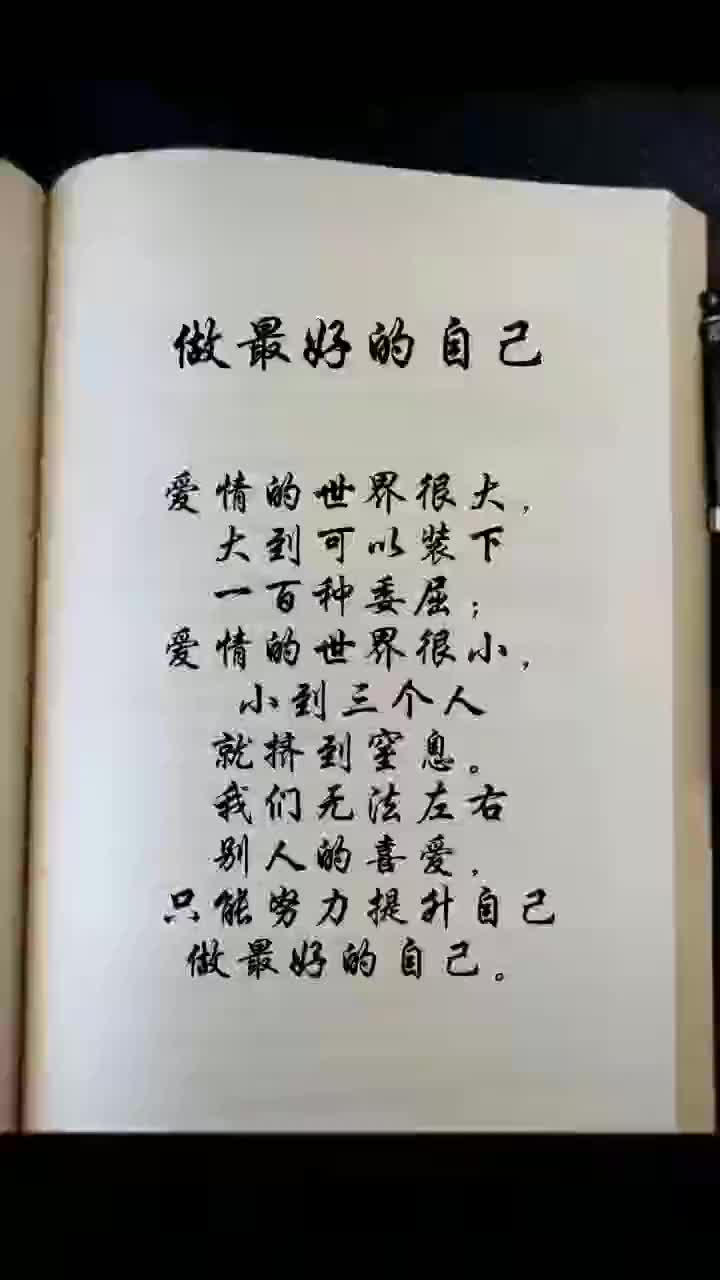 做最好的自己
爱情的世界很大，
大到可以装下
一百种委屈；
爱情的世界很小，
小到三个人
就挤到窒息。
我们无法左右
别人的喜爱，
只能努力提升自己
做最好的自己。